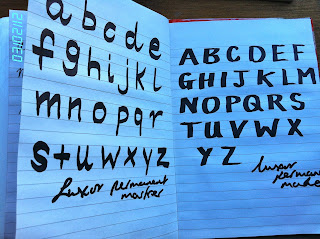 a b c d e
f g h i j k l
m n o p q r
s t u w x y z
Luxor permanent
marker
A B C D E F
G H I J K L M
N O P Q R S
T U V W X
Y Z
luxor
perman
marke
03/02/12